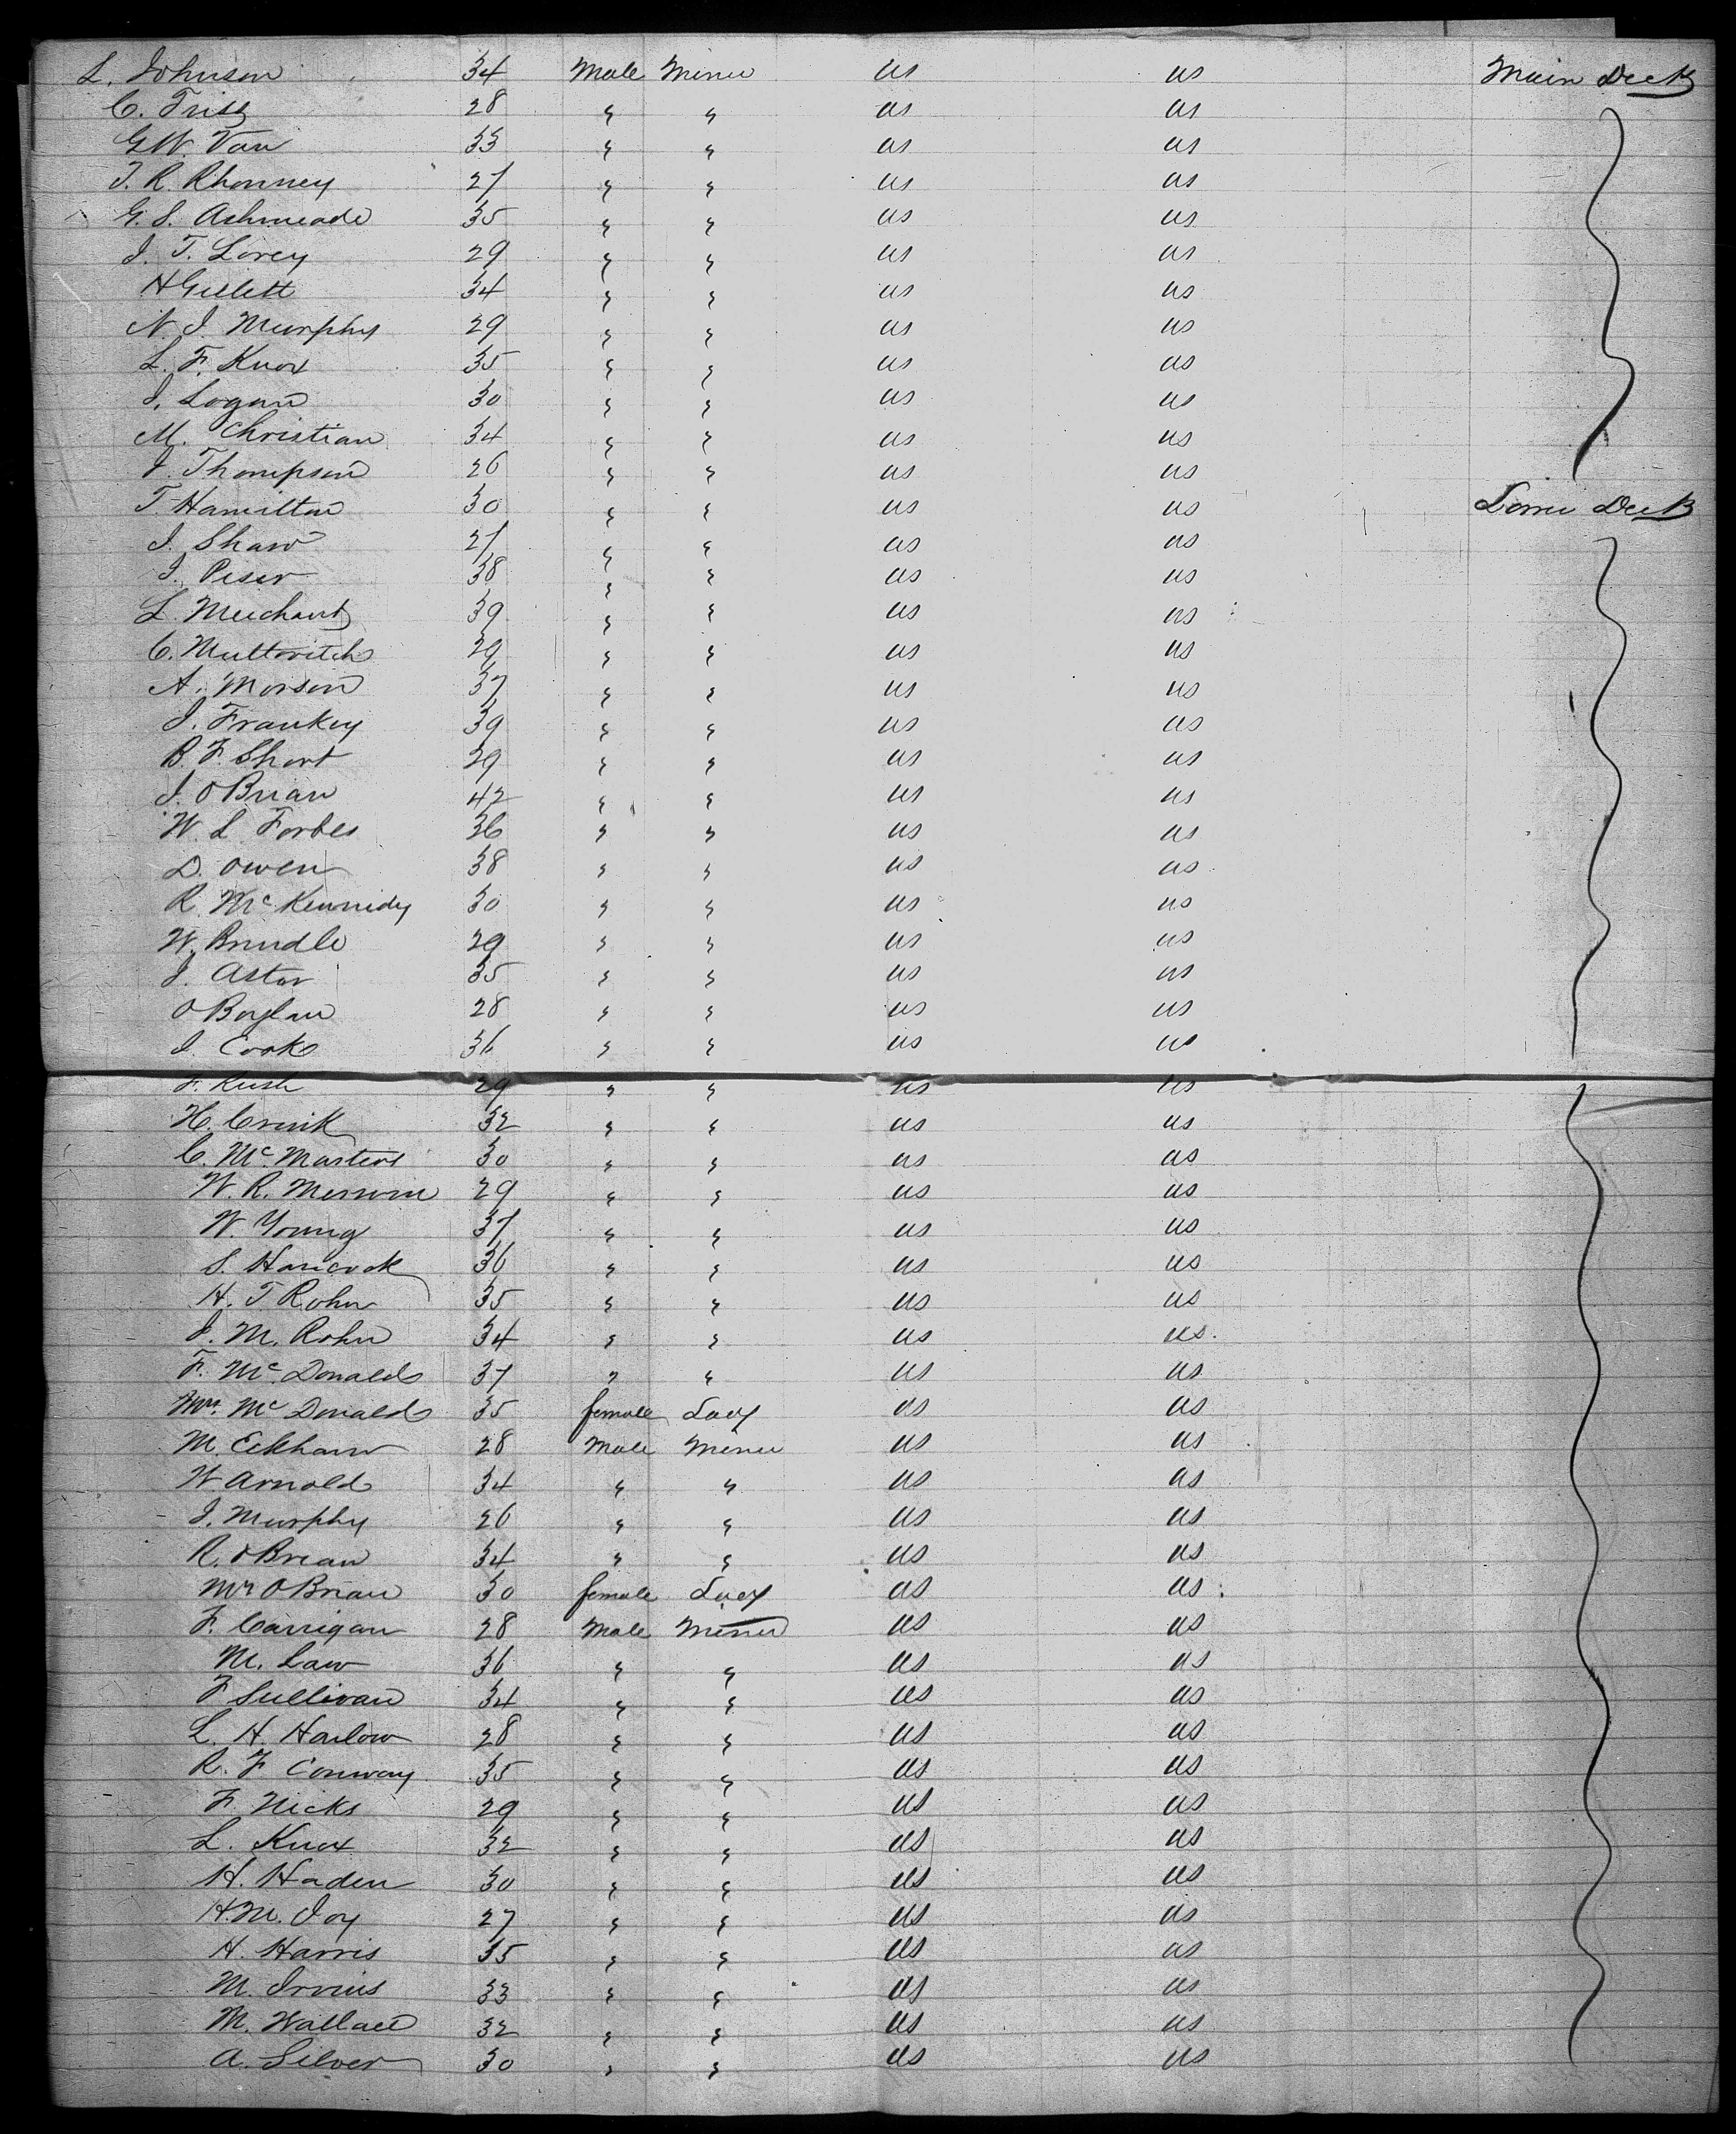 L. Johnson 34 Male Miner US US Main Deck
C. Frisz 28 " " US US
G.W. Van 33 " " US US
J. R. Rhonney 27 " " US US
G. S. Ashmeade 35 " " US US
J. T. Lorey 29 " " US US
H Gillett 34 " " US US
N. J Murphy 29 " " US US
L. F. Knox 35 " " US US
J. Logan 30 " " US US
M. Christian 34 " " US US
J. Thompson 26 " " US US
T. Hamilton 30 " " US US Lower Deck
J. Shaw 27 " " US US
J. Peser 38 " " US US
L. Merchant 39 " " US US
C. Multovitch 29 " " US US
A. Morson 37 " " US US
J. Frankey 39 " " US US
B. F Short 29 " " US US
J. O Brian 42 " " US US
W. L Forbes 36 " " US US
D. Owen 38 " " US US
R. Mc Kennidy 30 " " US US
W. Brudle 29 " " US US
J. Astor 35 " " US US
O Boylan 28 " " US US
J. Cook 36 " " US US
F. Rush 29 " " US US
H. Crink 32 " " US US
C. Mc Masters 30 " " US US
W. R. 29 " " US US
W. Young 37 " " US US
S. Hancock 36 " " US US
H. T Rohn 35 " " US US
J. M. Rohn 34 " " US US
F. Mc Donald 37 " " US US
Mrs. Mc Donald 35 female Lady US US
M. Eckham 28 Male Miner US US
W Arnold 34 " " US US
J. Murphy 26 " " US US
R. O Brian 34 " " US US
Mrs O Brian 30 female Lady US US
F. Carrigan 28 Male Miner US US
M. Law 36 " " US US
F Sullivan 34 " " US US
L. H. Harlow 28 " " US US
R. F Conway 35 " " US US
F. Hicks 29 " " US US
L. Knox 32 " " US US
H. Haden 30 " " US US
H. M. Joy 27 " " US US
H. Harris 35 " " US US
M. Irvins 33 " " US US
M. Wallace 32 " " US US
A. Silver 30 " " US US